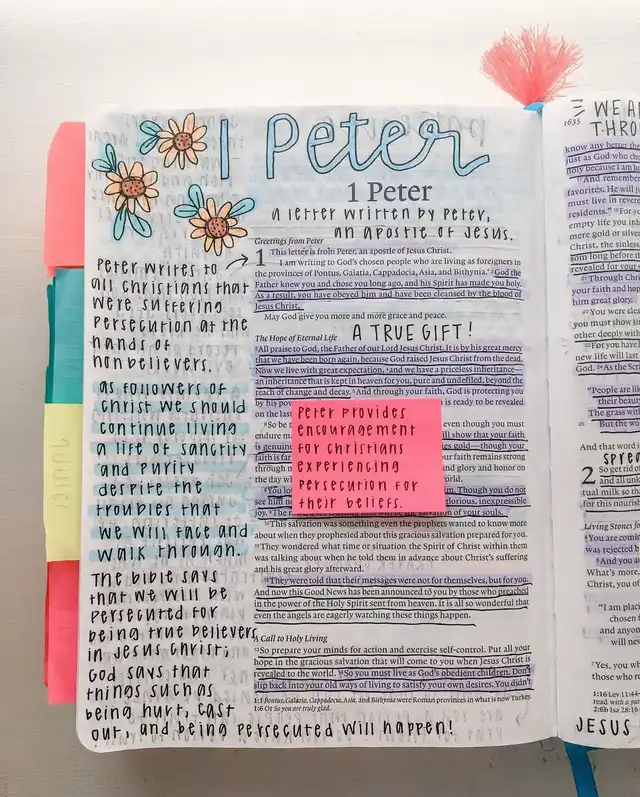 1 Peter
1 Peter
a letter written by Peter,
an apostle of Jesus.
Greetings from Peter
1 This letter is from Peter, an apostle of Jesus Christ.
I am writing to God's chosen people who are living as foreigners in
the provinces of Pontus, Galatia, Cappadocia, Asia, and Bithynia. 2God the
Father knew you and chose you long ago, and his Spirit has made you holy.
As a result, you have obeyed him and have been cleansed by the blood of
Jesus Christ.
May God give you more and more grace and peace.
A TRUE GIFT!
The Hope of Eternal Life
3All praise to God, the Father of our Lord Jesus Christ. It is by his great mercy
that we have been born again, because God raised Jesus Christ from the dead.
Now we live with great expectation, 4and we have a priceless inheritance—
an inheritance that is kept in heaven for you, pure and undefiled, beyond the
reach of change and decay. 5And through your faith, God is protecting you
by his pow
is ready to be revealed
on the las
6So be t
even though you must
endure ma
will show that your faith
is genuine
gold—though your
faith is far
faith remains strong
through m
and glory and honor on
the day wh
8You lo
m. Though you do not
see him no
glorious, inexpressible
joy.
salvation of your souls.
10This salvation was something even the prophets wanted to know more
about when they prophesied about this gracious salvation prepared for you.
11They wondered what time or situation the Spirit of Christ within them
was talking about when he told them in advance about Christ's suffering
and his great glory afterward.
12They were told that their messages were not for themselves, but for you.
And now this Good News has been announced to you by those who preached
in the power of the Holy Spirit sent from heaven. It is all so wonderful that
even the angels are eagerly watching these things happen.
A Call to Holy Living
13So prepare your minds for action and exercise self-control. Put all your
hope in the gracious salvation that will come to you when Jesus Christ is
revealed to the world. 14So you must live as God's obedient children. Don't
slip back into your old ways of living to satisfy your own desires. You didn't
1:1 Pontus, Galatia, Cappadocia, Asia, and Bithynia were Roman provinces in what is now Turkey.
1:6 Or So you are truly glad.
Peter writes to
all Christians that
were suffering
persecution at the
hands of
nonbelievers.
as followers of
Christ we should
continue living
a life of sanctity
and purity
despite the
troubles that
we will face and
walk through.
The Bible says
that we will be
persecuted for
being true believers
in Jesus Christ;
God says that
things such as
being hurt, cast
out, and being persecuted will happen!
Peter provides
encouragement
for Christians
experiencing
persecution for
their beliefs.
1635
WE A
THRO
know any better the
just as God who cho
holy because I am ho
17And remember
favorites. He will j
must live in revere
residents." 18For y
empty life you inh
mere gold or silver
Christ, the sinless
som long before th
revealed for your s
21Through Chri
your faith and hop
him great glory.
22You were clea
you must show sin
other deeply with
23For you have
new life will last
God. 24As the Scri
"People are lik
their beauty
The grass wit
25 But the wo
And that word i
SPREA
2 So get rid o
and all unk
tual milk so th
for this nourish
Living Stones for
4You are comin
was rejected b
5And you a
What's more,
Christ, you of
"I am plac
chosen f
and anyon
will nev
7Yes, you wh
those who re
1:16 Lev 11:44-
read with a pur
2:6b Isa 28:16
JESUS